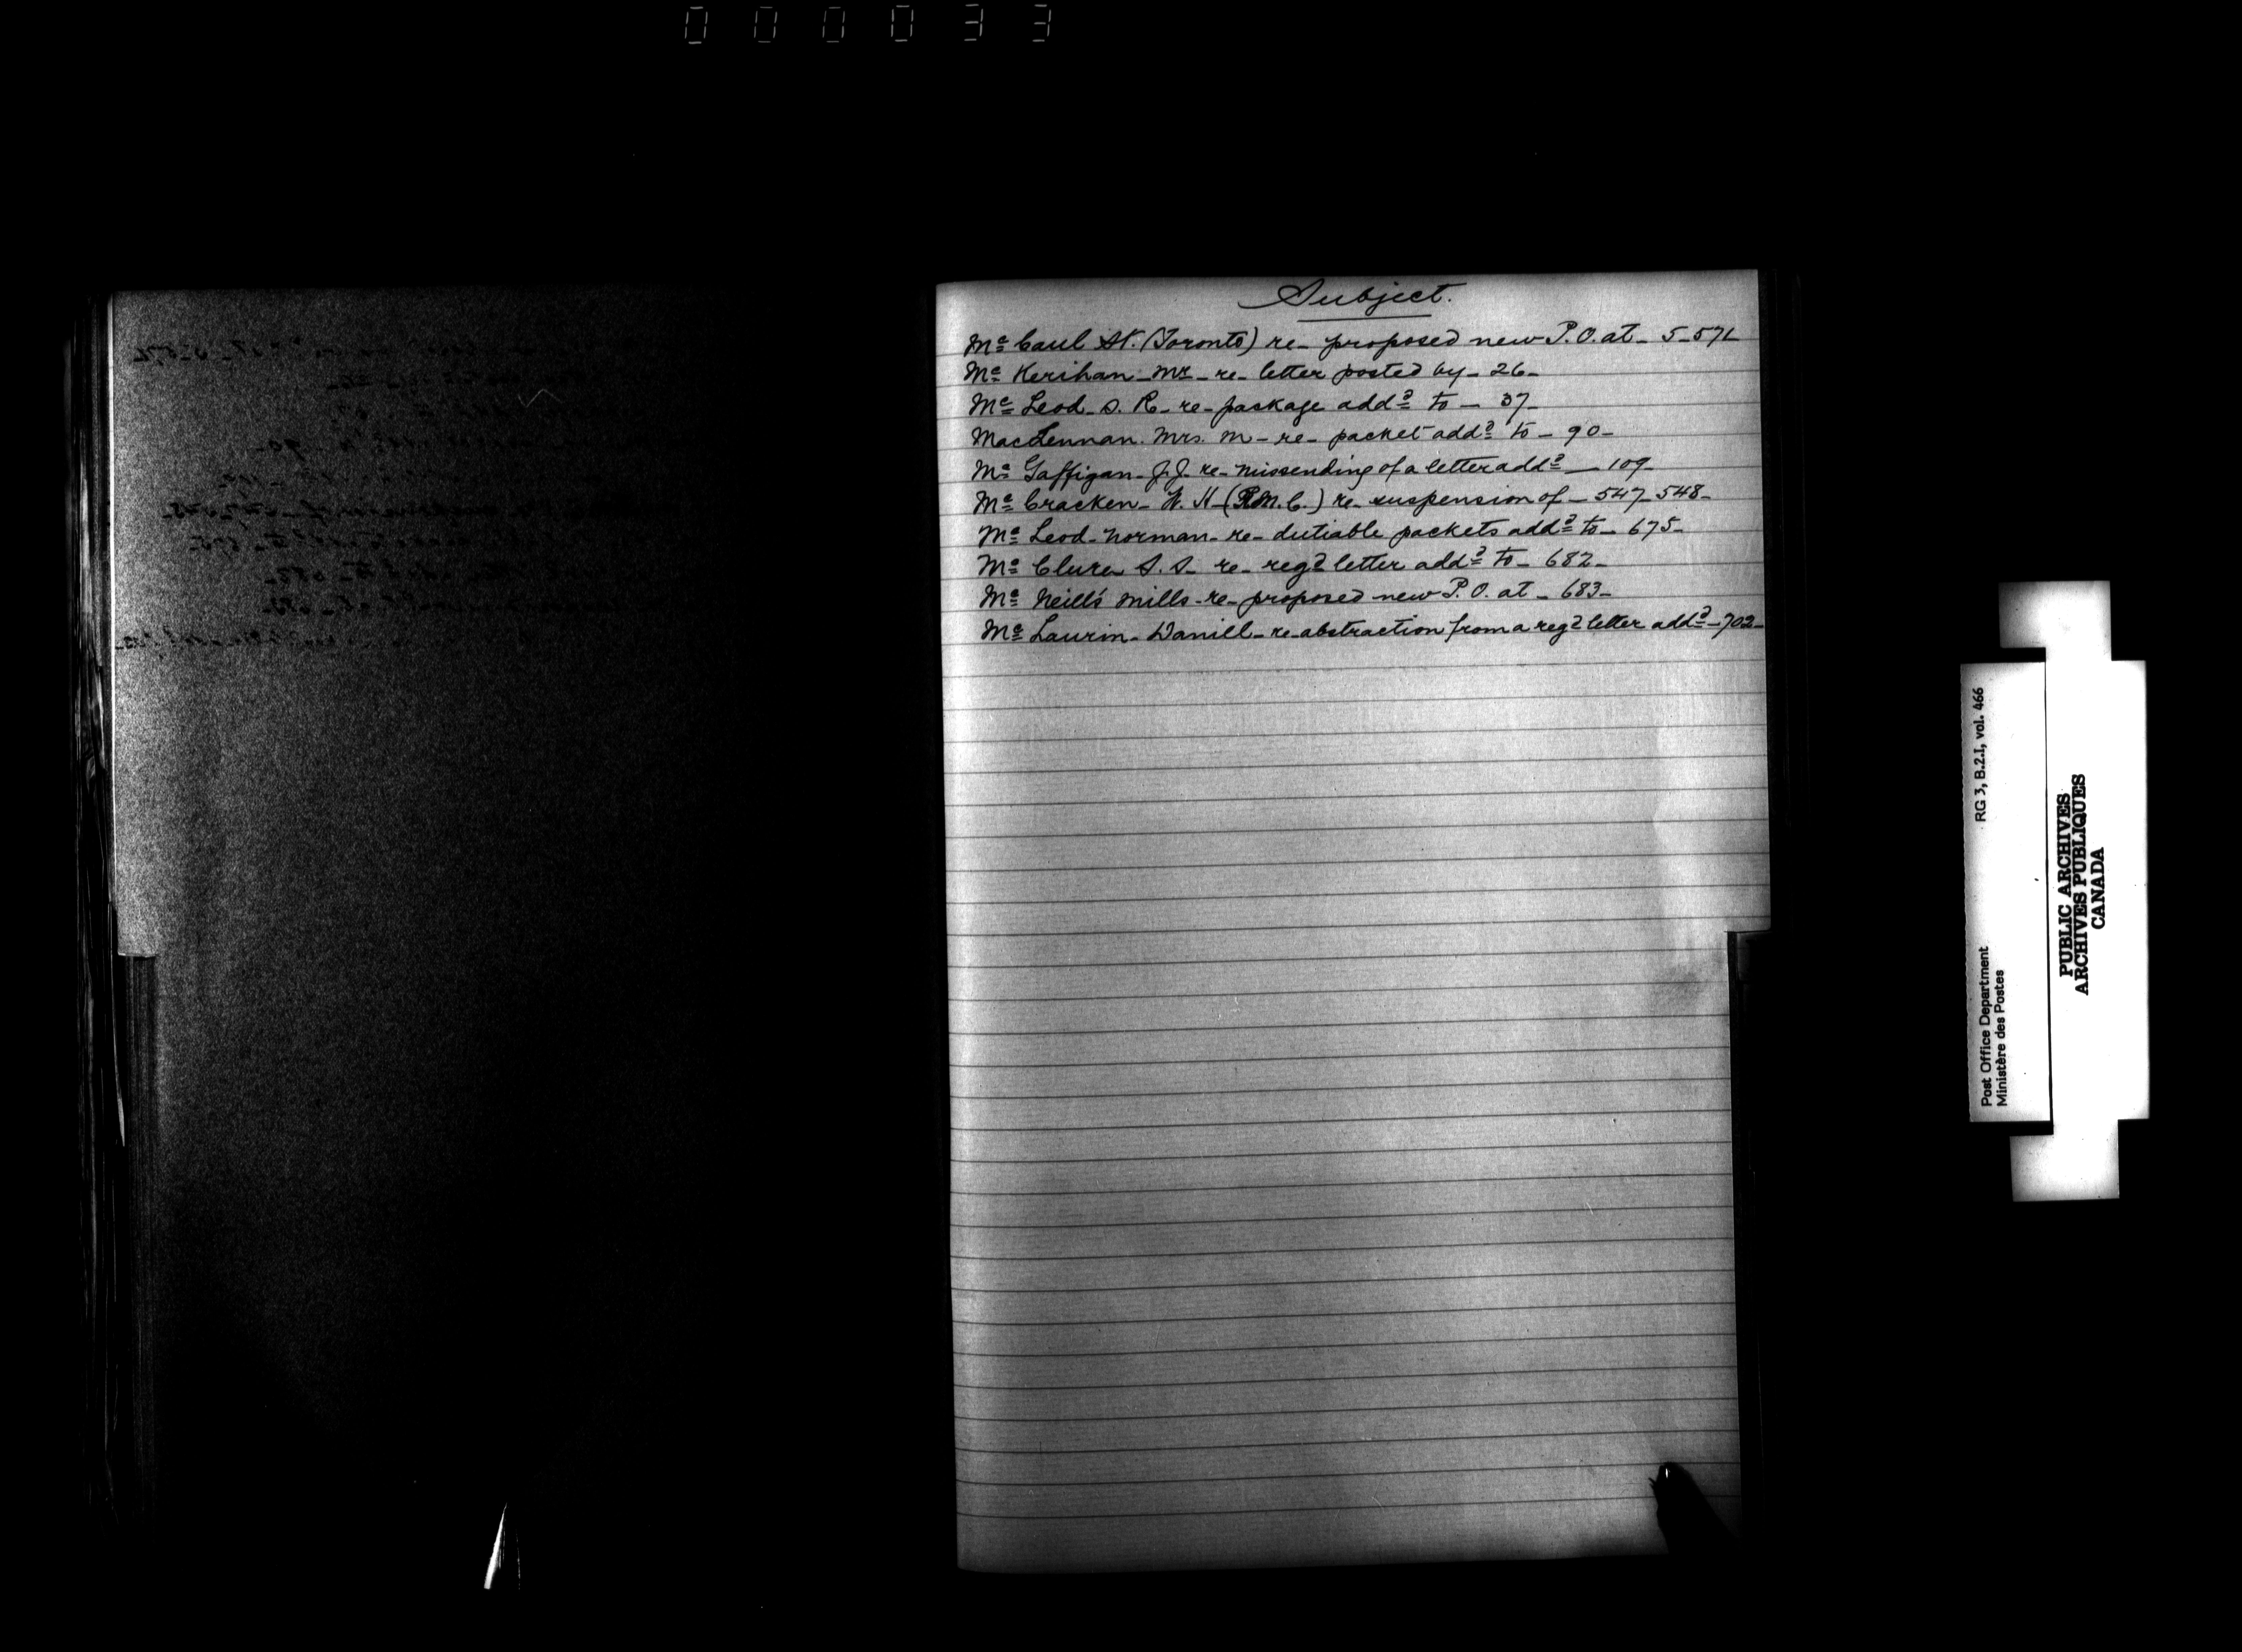 000033
Subject.
Mc Caul St. (Toronto) re- proposed new P.O. at- 5-571
Mc Kerihan- Mr- re- letter posted by- 26-
Mc Leod- D. R- re- package addd to- 37-
MacLennan. Mrs. M- re- packet addd to- 90-
Mc Gaffigan- J.J. re- missending of a letter addd- 109-
Mc Cracken- W. H- (R.M.C.) re- suspension of- 547-548-
Mc Leod- Norman- re- dutiable packets addd to- 675-
Mc Clure S. S- re- regd letter addd to- 682-
Mc Neill's Mills- re- proposed new P. O. at- 683-
Mc Laurin- Daniel- re- abstraction from a regd letter addd- 702-
Post Office Department RG 3, B.2.I, vol. 466
Ministère des Postes
PUBLIC ARCHIVES
ARCHIVES PUBLIQUES
CANADA